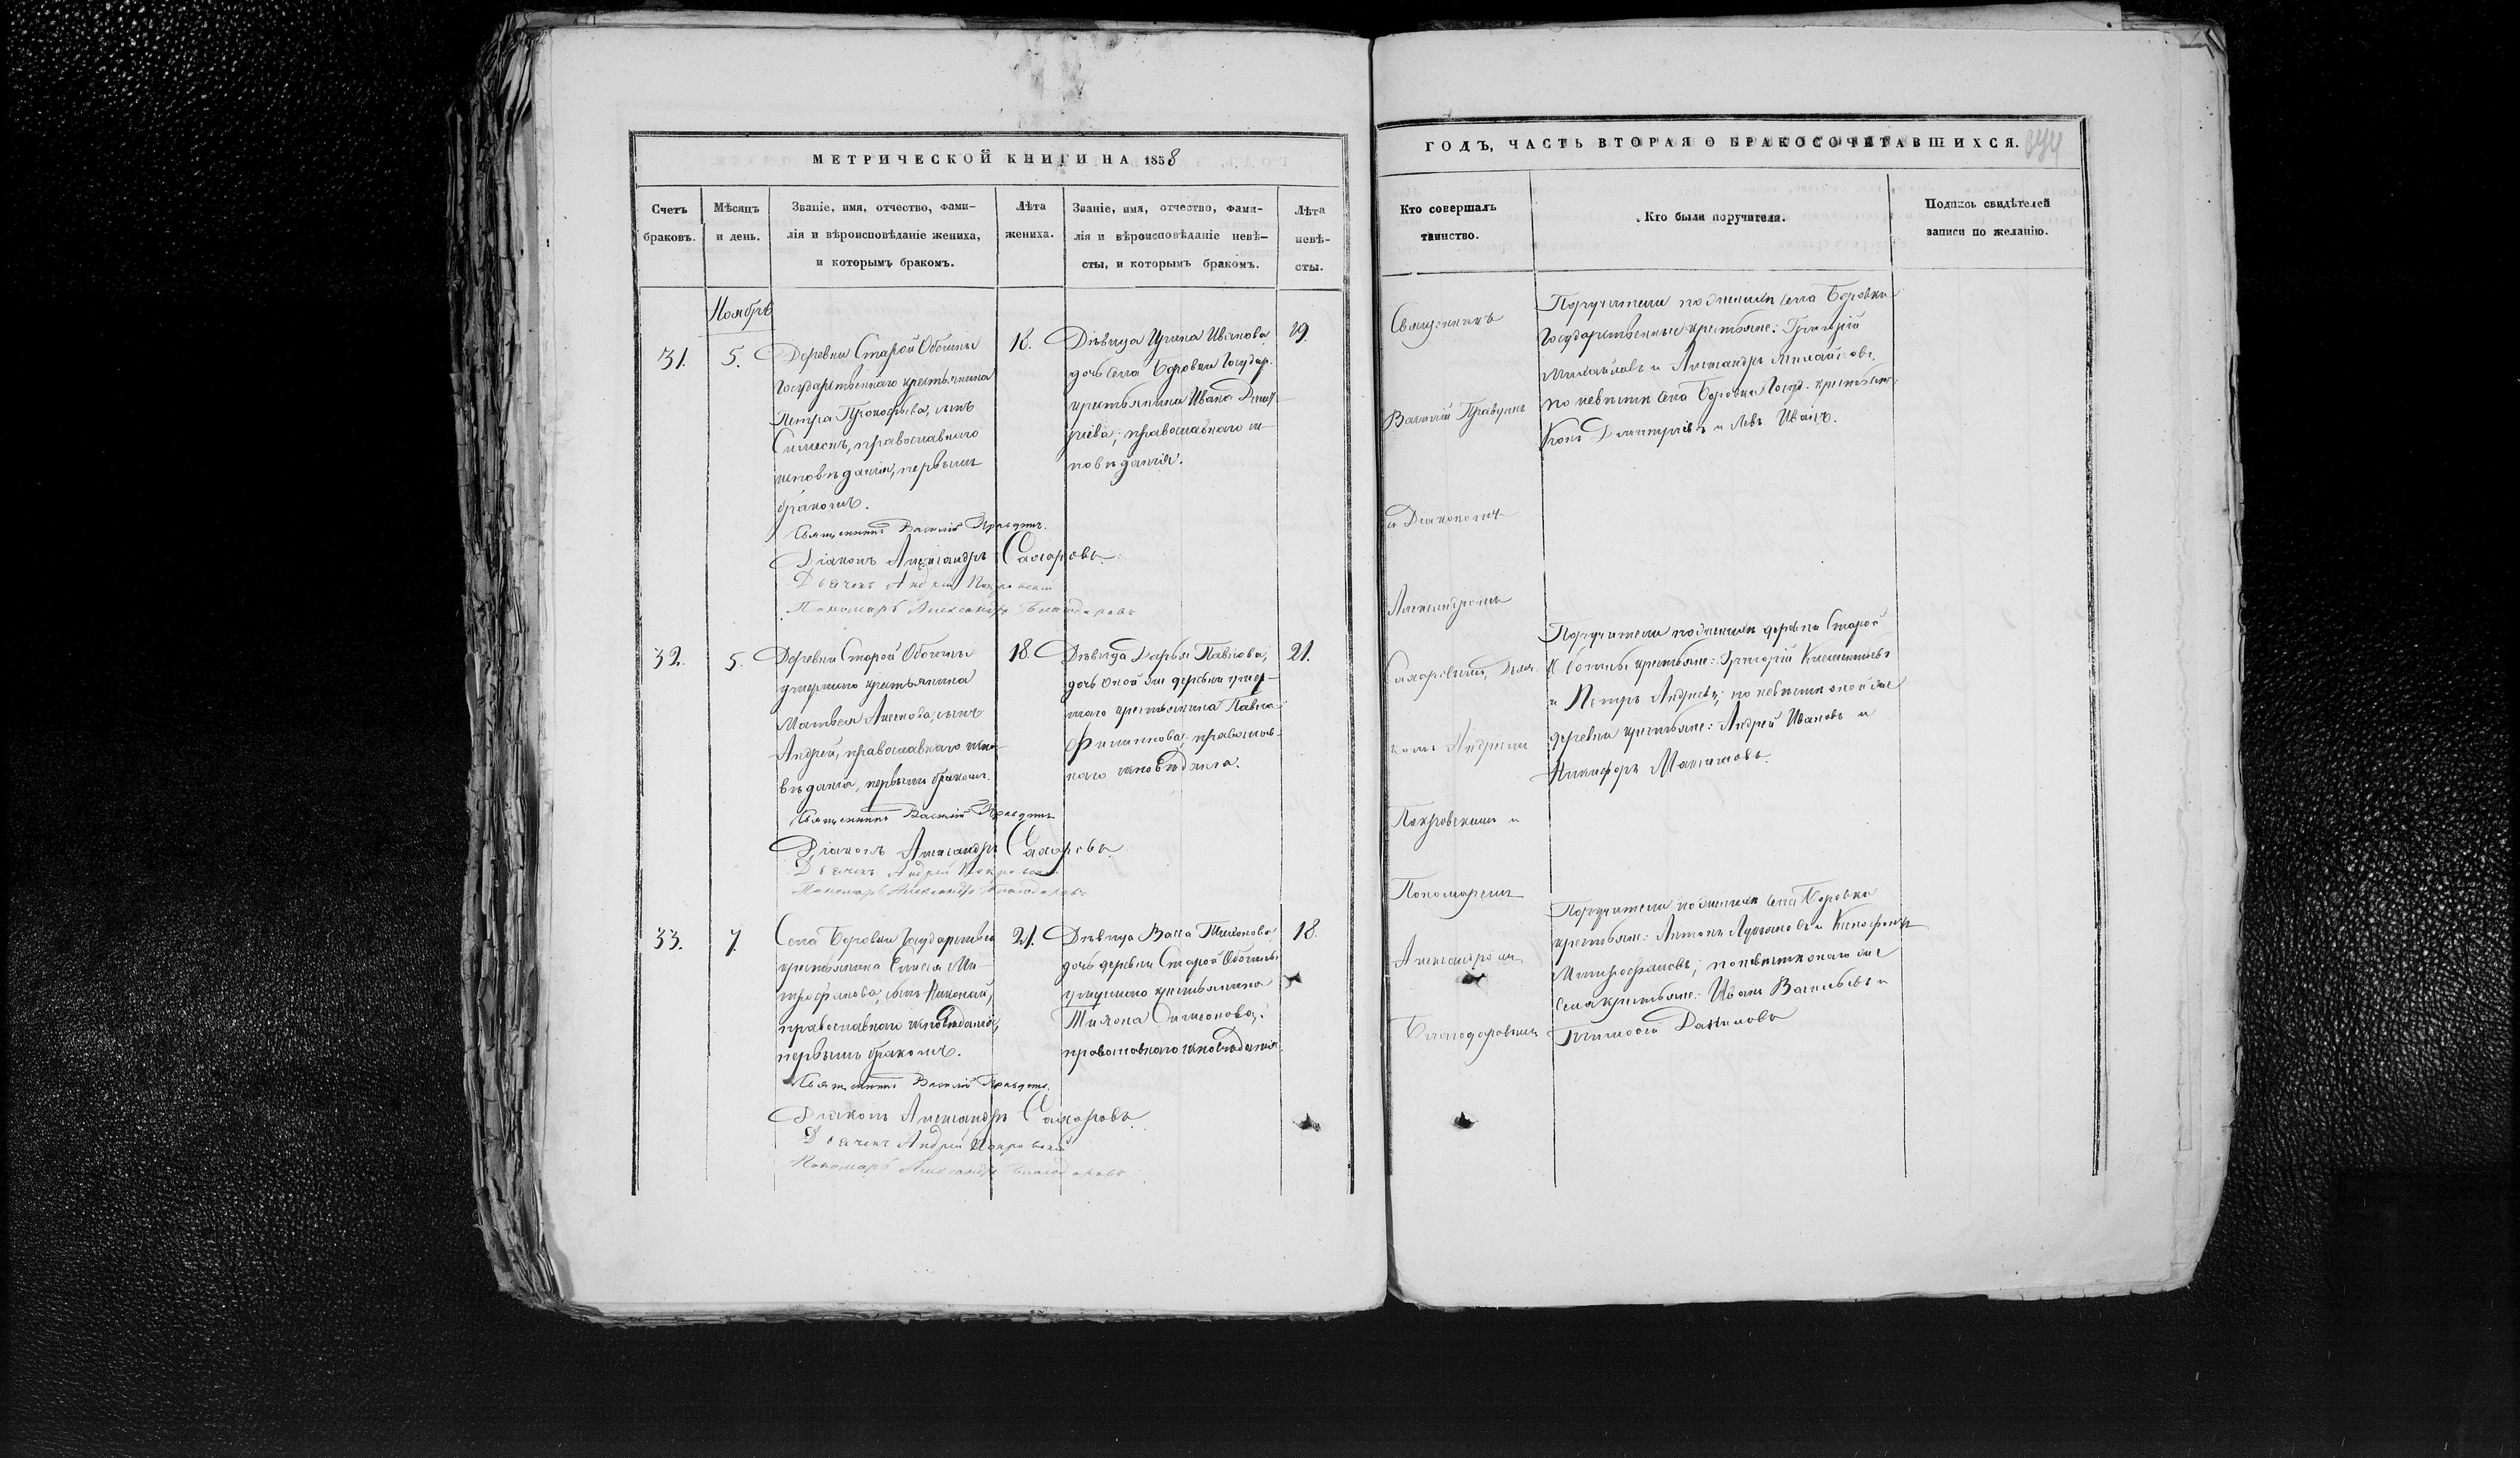 МЕТРИЧЕСКОЙ КНИГИ НА 1858
Счетъ браковъ.
Мѣсяцъ и день.
Званіе, имя, отчество, фами-
лія и вѣроисповѣданіе жениха,
и которымъ бракомъ.
Лѣта
жениха.
Званіе, имя, отчество, фами-
лія и вѣроисповѣданіе невѣ-
сты, и которымъ бракомъ.
Лѣта
невѣ-
сты.
Ноябрь
31.
5.
Деревни Старой
Государственнаго крестьянина
Петра Прокофьева, сынъ
Симеонъ, православнаго
исповѣданія, первымъ
бракомъ.
18.
Дѣвица Ирина Иванова
дочь села Боровки Государ.
крестьянина Ивана Дмит-
ріева, православнаго ис-
повѣданія.
19.
Священникъ Василій Правдинъ.
Діаконъ Александръ Сахаровъ.
Дьячекъ Андрей Покровскій
Пономарь Александръ Благодаровъ
32.
5.
Деревни Старой
умершаго крестьянина
Матвея сынъ
Андрей, православнаго испо-
вѣданія, первымъ бракомъ.
18.
Дѣвица Дарья Павлова,
дочь оной же деревни умер-
шаго крестьянина Павла
Филиппова, православ-
наго исповѣданія.
21.
Священникъ Василій Правдинъ
Діаконъ Александръ Сахаровъ
Дьячекъ Андрей Покровскій
Пономарь Александръ Благодаровъ
33.
7.
Села Боровки Государствен
крестьянина Елисея Ми-
трофанова, сынъ Николай,
православнаго исповѣданія,
первымъ бракомъ.
21.
Дѣвица Васса Тихонова
дочь деревни Старой
умершаго крестьянина
Тихона Симеонова,
православнаго исповѣданія.
18.
Священникъ Василій Правдинъ.
Діаконъ Александръ Сахаровъ.
Дьячекъ Андрей Покровскій
Пономарь Александръ Благодаровъ
ГОДЪ, ЧАСТЬ ВТОРАЯ О БРАКОСОЧЕТАВШИХСЯ.
Кто совершалъ
таинство.
Кто были поручители.
Подпись свидѣтелей
записи по желанію.
Священникъ
Василій Правдинъ
съ Діакономъ
Александромъ
Сахаровымъ, Дьяч
комъ Андреемъ
Покровскимъ и
Пономаремъ
Александромъ
Благодаровымъ
Поручители по женихѣ села Боровки
Государственные крестьяне: Григорій
Михайловъ и Александръ
по невѣстѣ села Боровки Госуд. крестьяне:
Дмитріевъ и Левъ
Поручители по женихѣ деревни Старой
крестьяне: Григорій Климентьевъ
и Петръ Андреевъ; по невѣстѣ оной же
деревни крестьяне: Андрей Ивановъ и
Никифоръ Максимовъ.
Поручители по женихѣ села Боровки
крестьяне: Антонъ и Ксенофонтъ
Митрофановъ; по невѣстѣ онаго же
села крестьяне: Иванъ Васильевъ и
Тимофей Даниловъ